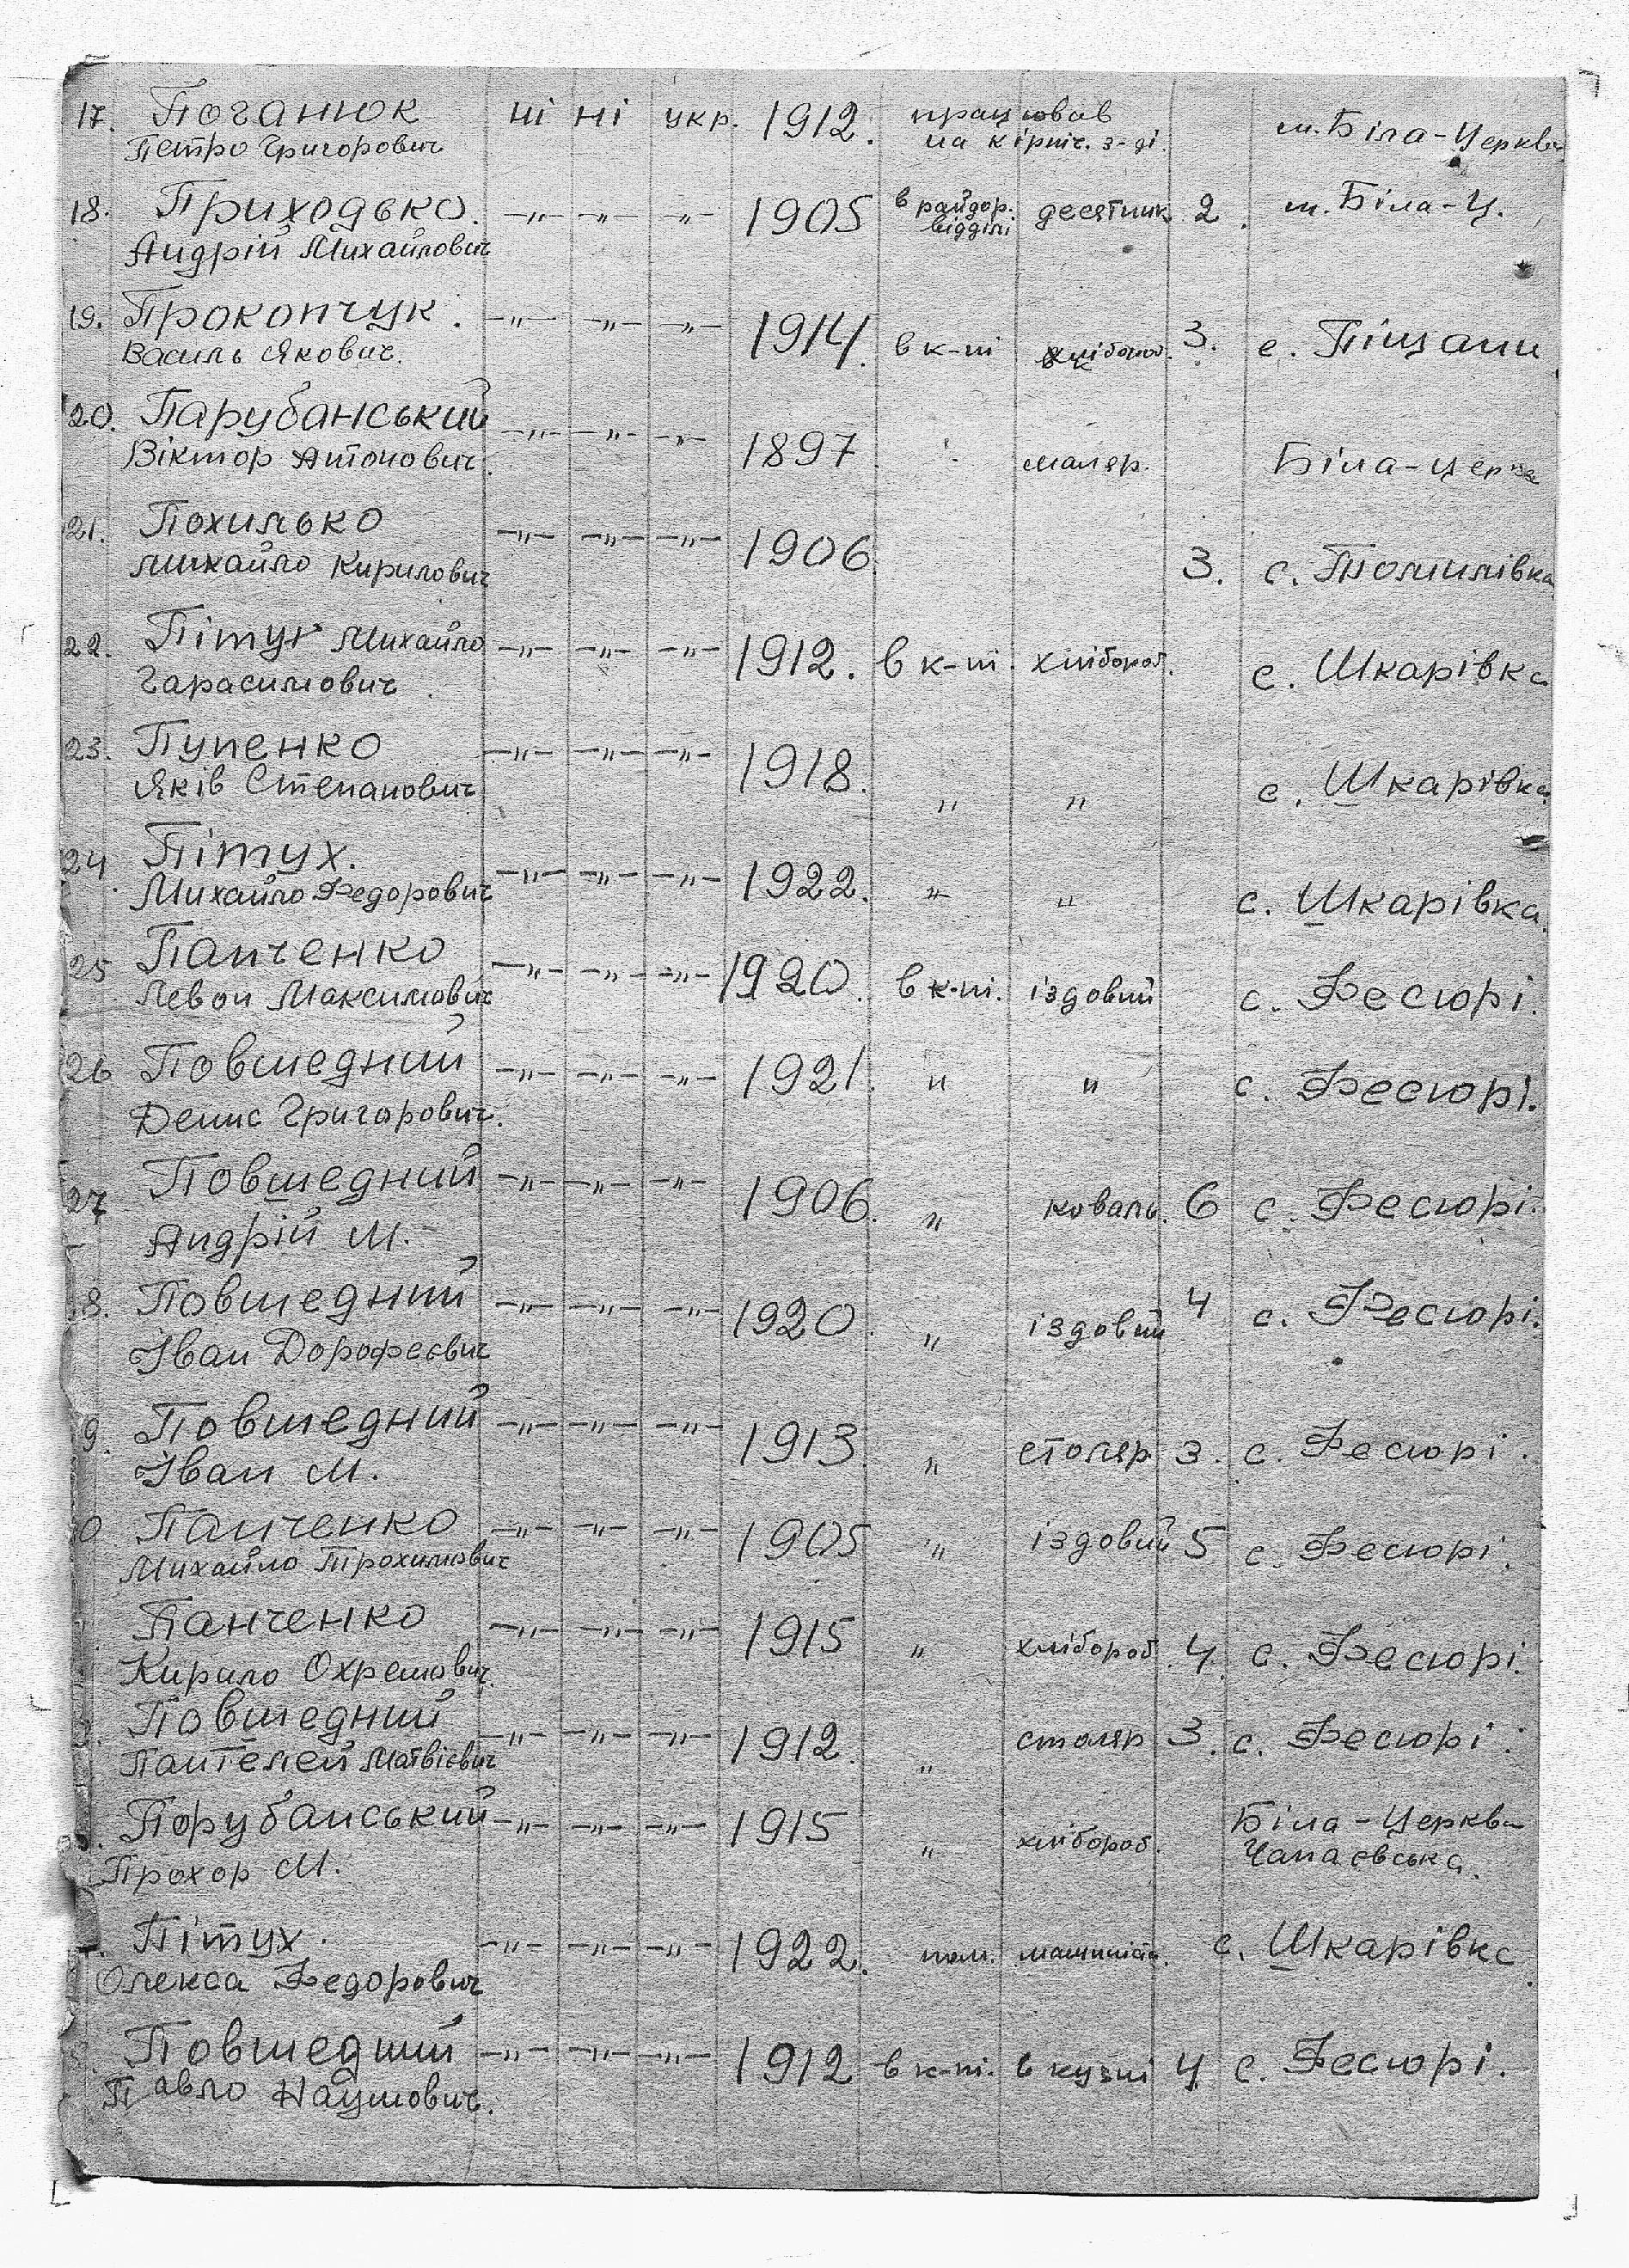 17. Поганюк ні ні укр. 1912. працював м. Біла-Церква
Петро Григорович на кірпіч. з-ді.
18. Приходько. -„- -„- -„- 1905 в райдор. десятник 2. м. Біла-Ц.
Андрій Михайлович відділі
19. Прокопчук. -„- -„- -„- 1914. в к-пі хлібороб. 3. с. Піщани
Василь Якович.
20. Парубанський -„- -„- -„- 1897 маляр. Біла-Церква
Віктор Антонович.
21. Похилько -„- -„- -„- 1906. 3. с. Томилівка
Михайло Кирилович
22. Пітух Михайло -„- -„- -„- 1912. в к-пі. хлібороб. с. Шкарівка
Гарасимович
23. Пупенко -„- -„- -„- 1918. „ „ с. Шкарівка
Яків Степанович
24. Пітух. -„- -„- -„- 1922. „ „ с. Шкарівка.
Михайло Федорович
25 Панченко -„- -„- -„- 1920. в к-пі. їздовий с. Фесюрі.
Левон Максимович
26 Повшедний -„- -„- -„- 1921. „ „ с. Фесюрі.
Денис Григорович.
27 Повшедний -„- -„- -„- 1906. „ коваль. 6 с. Фесюрі.
Андрій М.
8. Повшедний -„- -„- -„- 1920. „ їздовий 4 с. Фесюрі.
Іван Дорофеєвич
9. Повшедний -„- -„- -„- 1913. „ столяр 3. с. Фесюрі.
Іван М.
0 Панченко -„- -„- -„- 1905 „ їздовий 5 с. Фесюрі.
Михайло Трохимович
Панченко -„- -„- -„- 1915 „ хлібороб. 4. с. Фесюрі.
Кирило Охремович.
Повшедний -„- -„- -„- 1912. „ столяр 3. с. Фесюрі.
Пантелей Матвієвич
Порубанський -„- -„- -„- 1915 „ хлібороб. Біла-Церква
Прохор М. Чапаєвська.
Пітух. -„- -„- -„- 1922. пом. машиніста. с. Шкарівка
Олекса Федорович
Повшедний -„- -„- -„- 1912 в к-пі. в кузні 4 с. Фесюрі.
Павло Наумович.